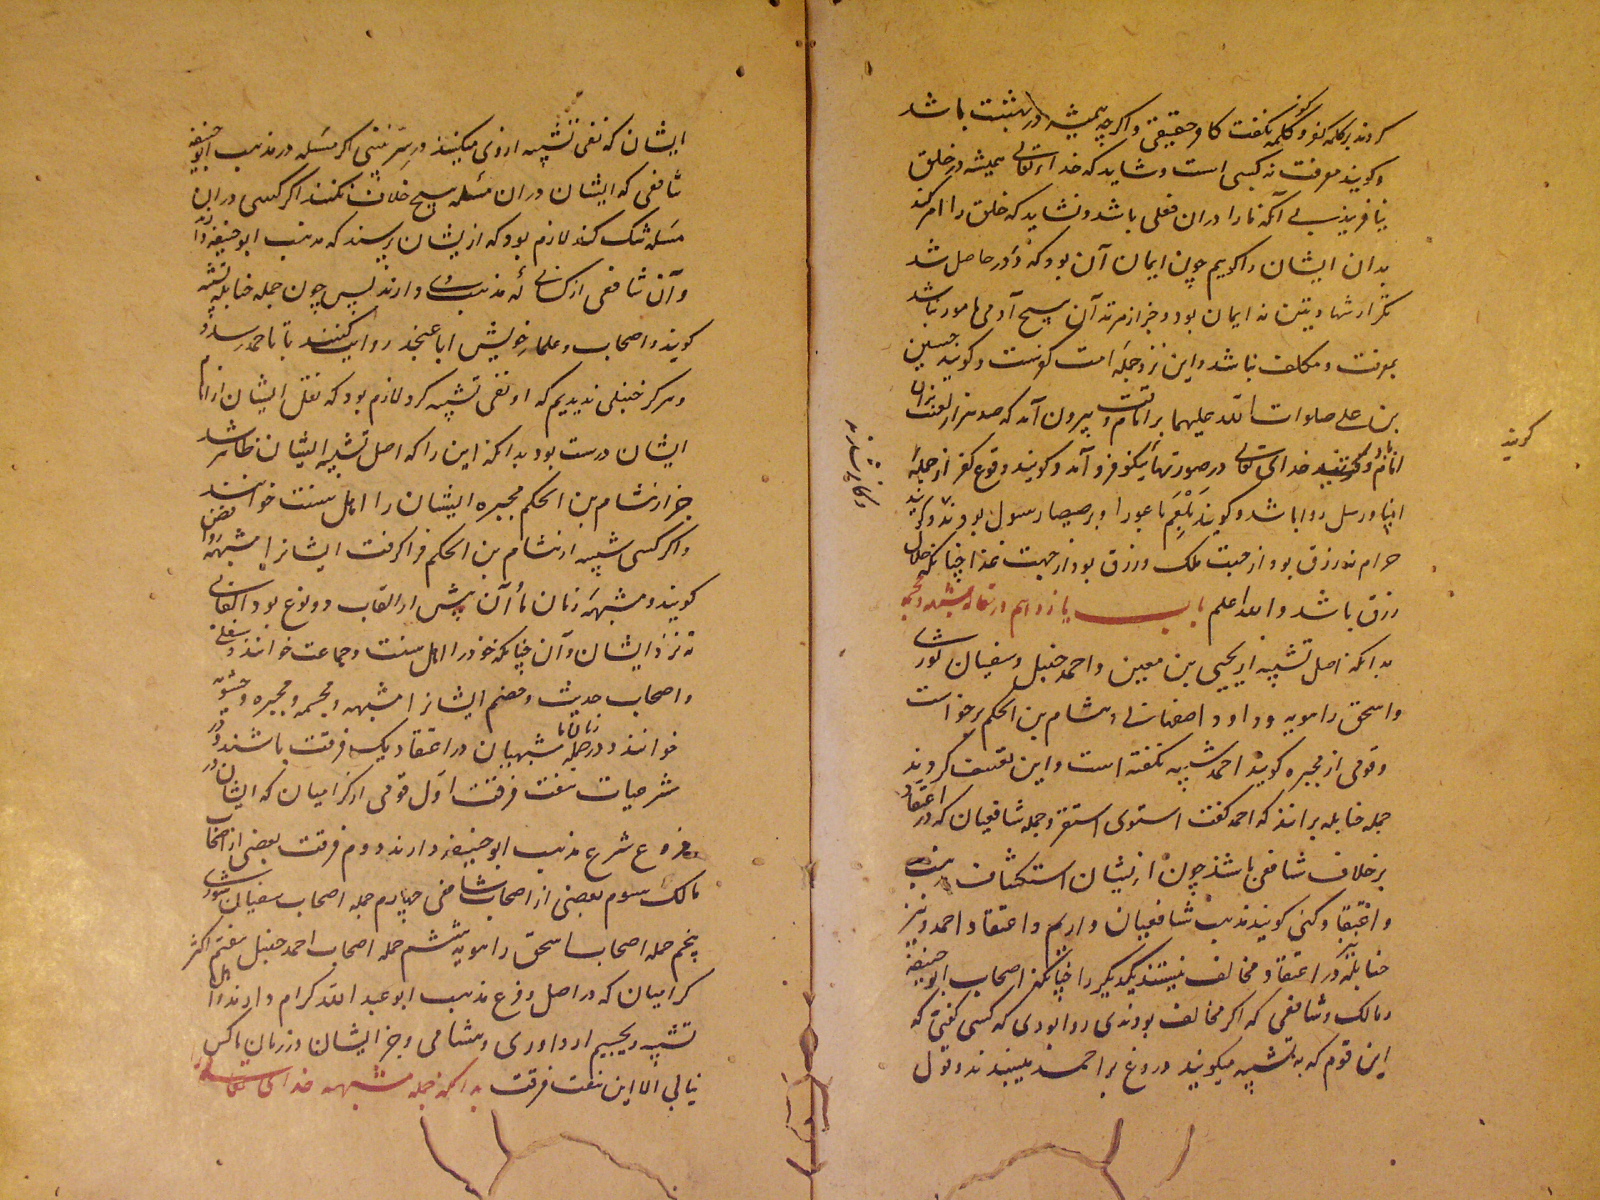 کردند بر کلمه کفر و کلمه بگفت کافر حقیقی و اگرچه همیشه در بهشت باشد
و گویند معرفت نه کسبی است و شاید که خداء تعالی همیشه در خلق
نیافریند بی آنکه ما را در آن فعلی باشد و نشاید که خلق را امر کند
بدان ایشان را گوییم چون ایمان آن بود که در ذر حاصل شد
تکرار شهادتین نه ایمان بود و جز از مرتد آن هیچ آدمی مامور نباشد
بمعرفت و مکلف نباشد و این نزد جمله امت کفرست و گویند حسین
بن علی صلوات الله علیهما بر امام وقت بیرون آمد که صد هزار لعنت بر آن
امام و گویند خدای تعالی در صورتهای نیکو فرو آمد و گویند وقوع کفر از جمله
انبیا و رسل روا باشد و گویند بلعم باعورا و برصیصا رسول بودند و گویند
حرام نه رزق بود از جهت ملک و رزق بود از جهت غذا چنانکه حلال
رزق باشد والله اعلم باب یازدهم در مقالات مشبهه و مجسمه
بدانکه اصل تشبیه از یحیی بن معین و احمد حنبل و سفیان ثوری
و اسحق راهویه و داود اصفهانی و هشام بن الحکم برخواست
و قومی از مجبره گویند احمد تشبیه نگفته است و این تعسف کردند
جمله حنابله برانند که احمد گفت استوی استقر و جمله شافعیان که در اعتقاد
برخلاف شافعی باشند چون ازیشان استکشاف مذهب
و اعتقاد کنی گویند مذهب شافعیان داریم و اعتقاد احمد و نیز
حنابله در اعتقاد مخالف نیستند یکدیگر را چنانکه اصحاب ابوحنیفه
و مالک و شافعی که اگر مخالف بودندی روا بودی که کسی گفتی که
این قوم که به تشبیه میگویند دروغ بر احمد میبندند و قول
گویند
ایشان که نفی تشبیه از وی میکنند درستر نیستی اگر مسئله در مذهب ابوحنیفه
شافعی که ایشان در آن مسئله هیچ خلاف نکنند اگر کسی در این
مسئله شک کند لازم بود که ازیشان پرسند که مذهب ابوحنیفه دارند
و آن شافعی از کسانی که مذهب وی دارند پس چون جمله حنابله تشبیه
گویند و اصحاب و علماء خویش ابا عنجد روایت کنند تا باحمد رسد و
و هرگز حنبلی ندیدیم که او نفی تشبیه کرد لازم بود که نقل ایشان از امام
ایشان درست بود بدانکه این را که اصل تشبیه ایشان نهاده باشد
جز از هشام بن الحکم مجبره ایشان را اهل سنت خوانند
و اگر کسی تشبیه از هشام بن الحکم فرا گرفت ایشانرا مشبهه روافض
گویند و مشبهه زمان ما آن پیش از القاب دو نوع بود القابی
که نزد ایشان و آن چنانکه خود را اهل سنت و جماعت خوانند و سلفی
و اصحاب حدیث و خصم ایشانرا مشبهه و مجسمه و مجبره و حشویه
خوانند و در جمله زمان ما مشبهیان در اعتقاد یک فرقت باشند و در
شرعیات هفت فرقت اول قومی از کرامیان که ایشان در
فروع شرع مذهب ابوحنیفه دارند دوم فرقت بعضی از اصحاب
مالک سوم بعضی از اصحاب شافعی چهارم جمله اصحاب سفیان ثوری
پنجم جمله اصحاب اسحق راهویه ششم جمله اصحاب احمد حنبل هفتم اکثر
کرامیان که در اصل و فرع مذهب ابوعبدالله کرام دارند و اهل
تشبیه و تجسیم از داودی و هشامی و جز ایشان در زمان ما کس
نیابی الا این هفت فرقت بدانکه جمله مشبهه خدای تعالی را